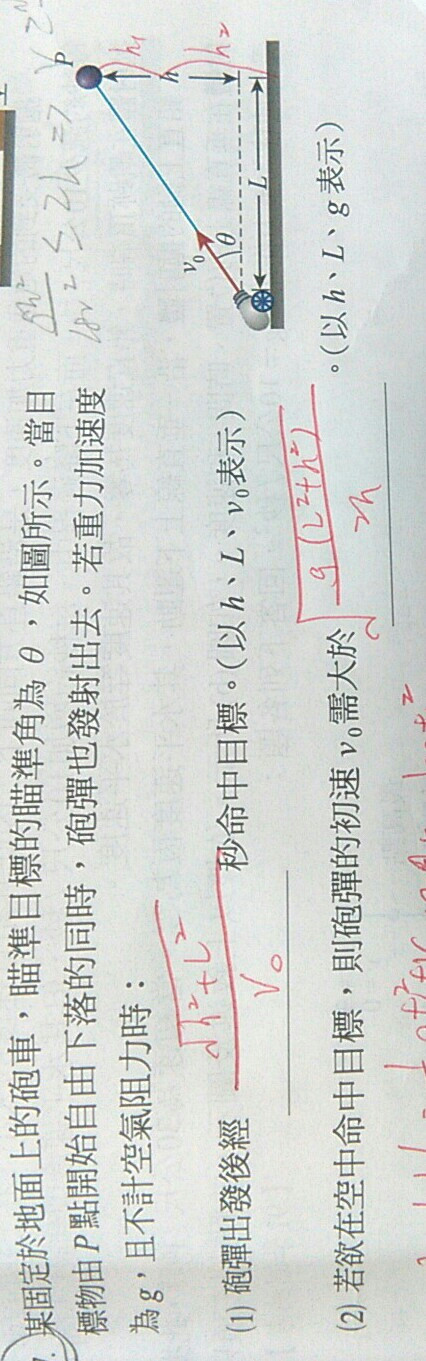 某固定於地面上的砲車,瞄準目標的瞄準角為 θ,如圖所示。當目
標物由 P 點開始自由下落的同時,砲彈也發射出去。若重力加速度
為 g,且不計空氣阻力時:
(1) 砲彈出發後經 √(h²+L²) / V₀ 秒命中目標。(以 h、L、v₀表示)
(2) 若欲在空中命中目標,則砲彈的初速 v₀需大於 √(g(L²+h²) / 2h) 。(以 h、L、g 表示)
P
h₁
h
h₂
v₀
θ
L